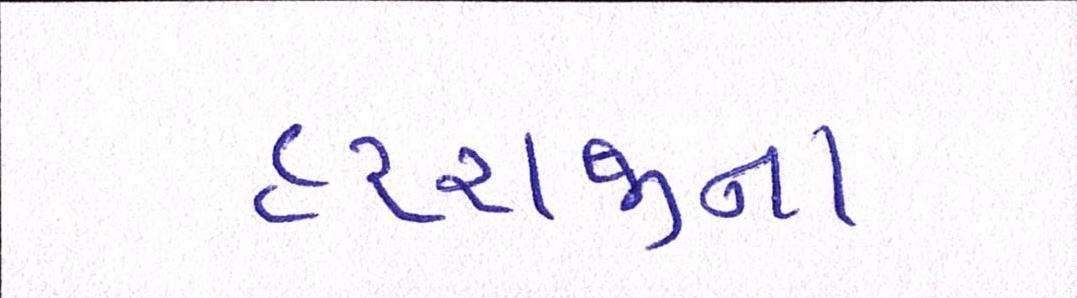 હરરાજીના